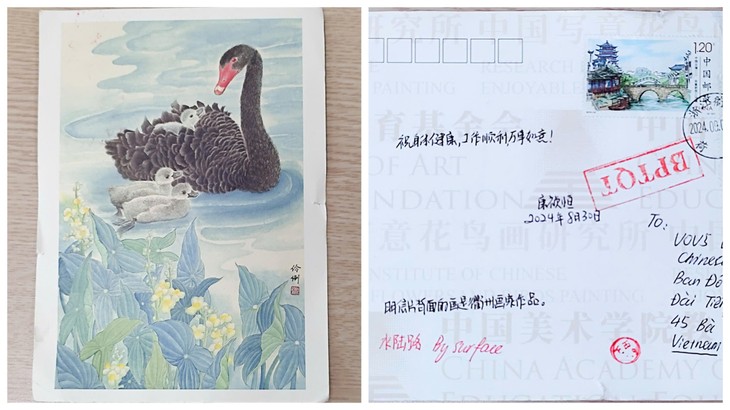 中国写意花鸟
RESEARCH IN
PAINTING
ENJOYABLE
1.20
中国邮
2024.09.0
祝身体健康,工作顺利万事如意!
育基金会
of Art
BPTQT
undation
2024年8月30日
To:
VOV5
Chinese
意花鸟画研究所 中国
Ban Đố
INSTITUTE OF CHINESE
Đài Tiế
PAINTING
明信片背面的画是衢州画家作品。
45 Bà
中国美术学院
水陆路 By surface
Vietnam
CHINA ACADEMY O